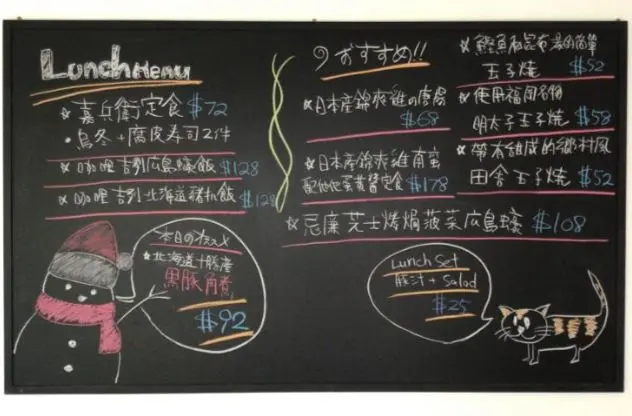 Lunch Menu
☆嘉兵衛定食 $72
・烏冬+腐皮寿司2件
☆咖喱吉列広島蠔飯 $128
☆咖喱吉列北海道豬扒飯 $128
本日のオススメ
☆北海道十勝産
黒豚角煮
$92
おすすめ!!
☆日本産錦爽雞の唐揚
$68
☆日本産錦爽雞南蛮
定食 $178
☆忌廉芝士焗菠菜広島蠔 $108
☆鰹魚和昆布湯的簡單
玉子焼 $52
☆使用福岡名物
明太子玉子焼 $58
☆帶有組成的鄉村風
田舎玉子焼 $52
Lunch Set
豚汁+Salad
$25